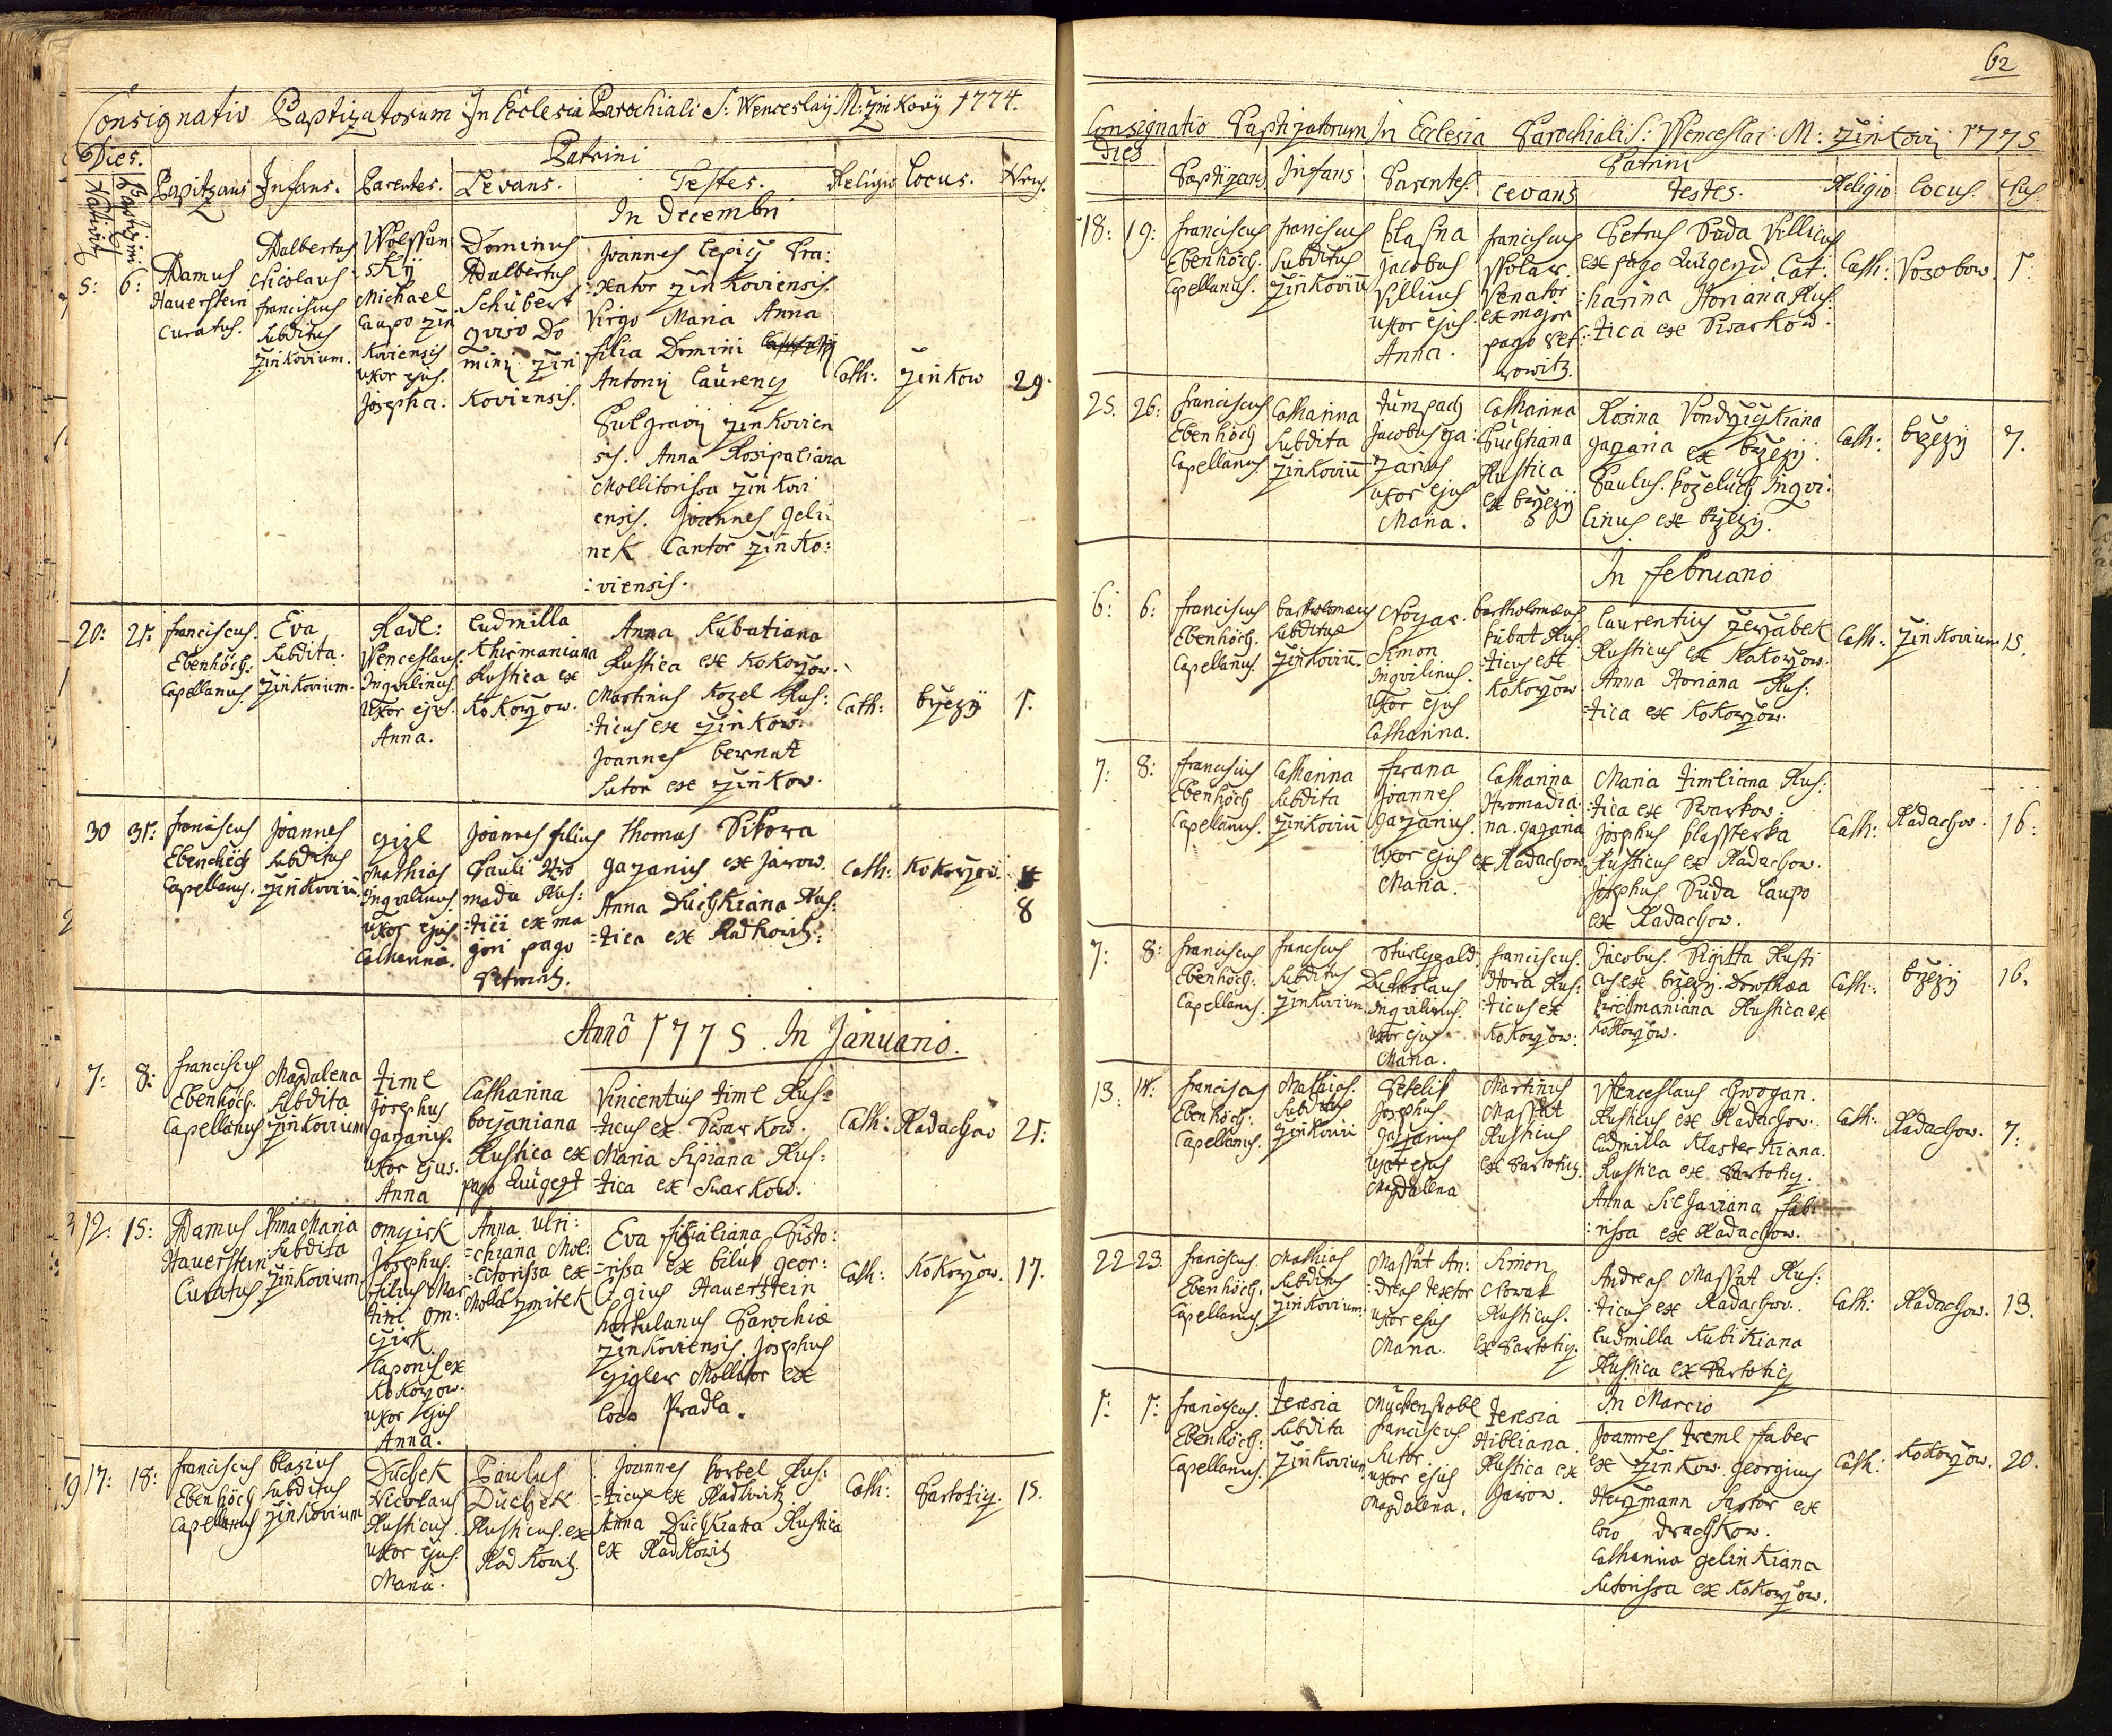 Consignatio Baptizatorum In Ecclesia Parochiali S: Wenceslaij M: Zinkovij 1774.
Dies. Patrini
Nativit. Baptizmi Baptizans Infans. Parentes. Levans. Testes. Religio Locus. Nrus.
In Decembri
5: 6:
Adamus
Hauerstein
Curatus.
Adalbertus
Nicolaus
Franciscus
Subditus
Zinkovium.
Wolffan
skÿ
Michael
Caupo Zin
koviensis
uxor ejus.
Josepha.
Dominus
Adalbertus
Schubert
Domini Zin
koviensis.
Joannes Lepicÿ
Zinkoviensis.
Virgo Maria Anna
filia Domini
Antonij Laurency
Zinkovien
sis. Anna Rosipaliana
Mollitorissa Zinkovi
ensis. Joannes Geli:
nek Cantor Zinko:
:viensis.
Cath: Zinkow 29.
20: 21:
Franciscus.
Ebenhöch.
Capellanus.
Eva
Subdita.
Zinkovium.
Radl:
Wenceslaus:
Inqvilinus.
Uxor ejus.
Anna.
Ludmilla
Rustica ex
Kokorzow.
Anna Kubatiana
Rustica ex Kokorzow.
Martinus Kozel Rus:
:ticus ex Zinkow.
Joannes Bernat
Sutor ex Zinkow.
Cath: Brzezÿ 1.
30 31:
Franciscus
Ebenhöch
Capellanus.
Joannes
Subditus
Zinkoviu.
Gizl
Mathias
Inqvilinus
Uxor ejus
Catharina.
Joannes filius
Pauli Hro
mada Rus:
:tici ex ma
jori pago
Petrowitz.
Thomas Sikora
Gazarius ex Jarow.
Anna Duchkiana Rus:
:tica ex Radkowitz:
Cath: Kokorzow.
8
Annô 1775. In Januario.
7: 8:
Franciscus
Ebenhöch.
Capellanus
Magdalena
Subdita
Zinkovium
Timl
Josephus
Gazarius.
uxor ejus.
Anna
Catharina
Borzaniana
Rustica ex
pago Augezt
Vincentius Timl Rus:
ticus ex Swarkow.
Maria Sipiana Rus:
:tica ex Swarkow.
Cath: Radachow 21:
12: 15:
Adamus
Hauerstein
Curatus
Anna Maria
Subdita
Zinkovium
Omzirk
Josephus.
filius Mar
tini Om:
zirk
Caponis ex
Kokorzow.
uxor ejus
Anna.
Anna Ulri:
:chiana Mol:
:litorissa ex
Zmitek
Eva Pisto:
:rissa ex Geor:
gius Hauerstein
hortulanus Parochiæ
Zinkoviensis. Josephus
Mollitor ex
loco Pradla.
Cath: Kokorzow. 17.
17: 18:
Franciscus
Ebenhöch
Capellanus
Blazius
Subditus
Zinkovium
Duchek
Nicolaus
Rusticus.
Uxor ejus.
Maria.
Paulus
Duchek
Rusticus ex
Radkowitz.
Joannes Korbel Rus:
:ticus ex Radkowitz
Anna Duchkiana Rustica
ex Radkowitz
Cath: Partoticz. 15.
62
Consignatio Baptizatorum In Ecclesia Parochiali S: Wenceslai: M: Zinkovij 1775
Dies Patrini
Baptizans Infans Parentes. Levans Testes. Religio Locus. Nus.
18: 19:
Franciscus
Ebenhöch.
Capellanus.
Franciscus
Subditus
Zinkoviu
Blasna
Jacobus
Villicus
uxor ejus.
Anna.
Franciscus
Wolar.
Venator
ex major
pago Pet:
rowitz.
Petrus Suda Villicus
ex pago Augezd Cat:
:harina Horiana Rus:
:tica ex Swarkow.
Cath: Wosobow. 1.
25. 26:
Franciscus
Ebenhöch
Capellanus
Catharina
Subdita
Zinkoviu
Tumpach
Jacobus Ga:
zarius
uxor ejus
Maria.
Catharina
Rustica
ex Brzezÿ
Rosina
Gazaria ex Brzezÿ.
Paulus. Kozeluch Inqvi:
linus ex Brzezÿ.
Cath: Brzezÿ 7.
In Februario
6: 6:
Franciscus
Ebenhöch.
Capellanus.
Bartholomæus
Subditus
Zinkoviu
Simon
Inqvilinus.
Uxor ejus
Catharina.
Bartholomæus
Kubat Rus
:ticus ex
Kokorzow
Laurentius Jerzabek
Rusticus ex Kokorzow.
Anna Horiana Rus:
:tica ex Kokorzow.
Cath: Zinkovium 15.
7: 8:
Franciscus
Ebenhöch
Capellanus.
Catharina
Subdita
Zinkoviu
Frana
Joannes
Gazarius.
Uxor ejus
Maria.
Catharina
Hromadia:
na. Gazaria
ex Radachow
Maria Timliana Rus:
:tica ex Swarkow.
Josephus Klasterka
Rusticus ex Radachow.
Josephus Suda Caupo
ex Radachow.
Cath: Radachow. 16:
7: 8:
Franciscus
Ebenhöch:
Capellanus.
Franciscus
Subditus
Zinkovium
Inqvilinus.
uxor ejus
Maria.
Franciscus.
Hora Rus:
:ticus ex
Kokorzow:
Jacobus. Rusti
cus ex Brzezÿ. Dorothæa
Rustica ex
Kokorzow.
Cath: Brzezÿ 16.
13. 14.
Franciscus
Ebenhöch:
Capellanus.
Mathias.
Subditus
Zinkovii
Petelik
Josephus
Gazarius
Uxor ejus
Magdalena
Martinus
Massat
Rusticus
ex Partoticz.
Wenceslaus Hrogan.
Rusticus ex Radachow.
Ludmilla Klasterkiana.
Rustica ex Partoticz.
Anna Silhaviana Fab:
:rissa ex Radachow.
Cath: Radachow. 7:
22 23.
Franciscus.
Ebenhöch.
Capellanus
Mathias
Subditus
Zinkovium
Massat An:
:dreas Textor
uxor ejus
Maria.
Simon
Nowak
Rusticus.
ex Partoticz.
Andreas Massat Rus:
:ticus ex Radachow.
Ludmilla Kubikiana
Rustica ex Partoticz
Cath: Radachow. 13.
In Marcio
1: 1:
Franciscus.
Ebenhöch:
Capellanus.
Teresia
Subdita
Zinkovium
Muckenstobl
Franciscus
Sutor.
uxor ejus
Magdalena.
Teresia
Rustica ex
Jarow.
Joannes Treml Faber
ex Zinkow. Georgius
Herzmann Sartor ex
loco Drachkow.
Catharina Gelinkiana
Sutorissa ex Kokorzow.
Cath: Kokorzow. 20.